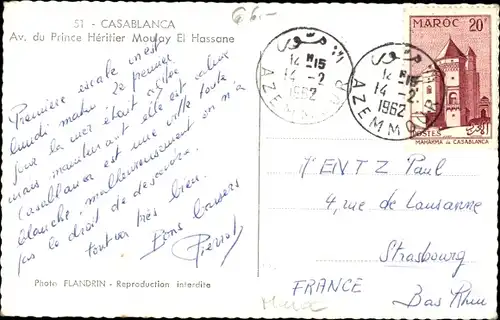 51 - CASABLANCA
Av. du Prince Héritier Moulay El Hassane
66.-
Première escale c'est
lundi matin. Le premier
jour la mer était agitée
mais maintenant elle est calme
Casablanca est une ville toute
blanche, malheureusement on n'a
pas le droit de descendre.
Tout va très bien.
Bons baisers
Pierrot
Photo FLANDRIN - Reproduction interdite
MAROC 20F
POSTES
MAHAKMA de CASABLANCA
14 H15
14-2
1962
AZEMMOUR
14 H15
14-2
1962
AZEMMOUR
MENTZ Paul
4, rue de Lausanne
Strasbourg
FRANCE Bas Rhin